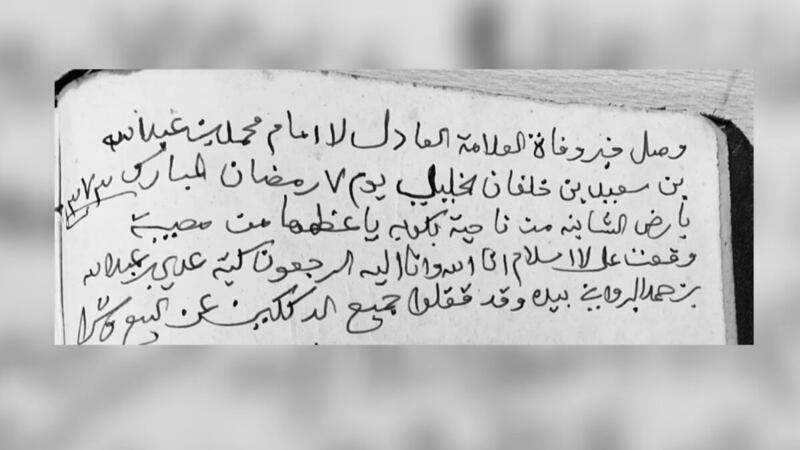 وصل خبر وفاة العلامة العادل لاامام محمد بن عبدالله
بن سعيد بن خلفان لخليلي يوم ٧ رمضان المبارك ١٣٧٣
بارض من ناحية ياعظمها من مصيبة
وقعت على لااسلام انا لله وانا اليه الرجعون كتبه عدي بن عبدالله
بن حمد البرواني بيده وقد قفلوا جميع الدككين عن البيع